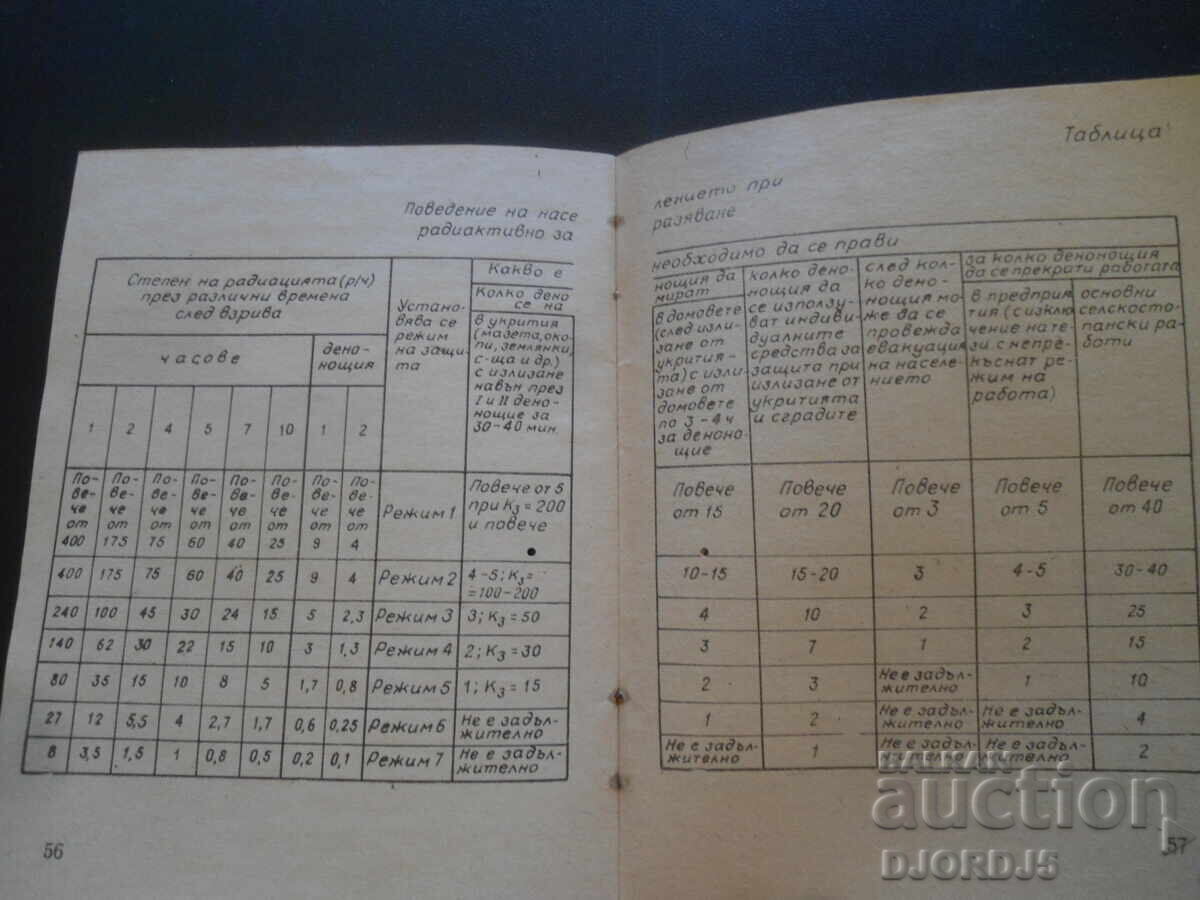 Поведение на насе
радиактивно за
Степен на радиацията (р/ч)
през различни времена
след взрива
Установява се
режим
на защита
Какво е
Колко дено
се на
в укрития
(мазета, око
пи, землянки,
с-ща и др.)
с излизане
навън през
I и II дено-
нощие за
30-40 мин.
часове
дено-
нощия
1 2 4 5 7 10 1 2
По- По- По- По- По- По- По- По-
ве- ве- ве- ве- ве- ве- ве- ве-
че че че че че че че че
от от от от от от от от
400 175 75 60 40 25 9 4
Режим 1
Повече от 5
при Kз=200
и повече
400 175 75 60 40 25 9 4 Режим 2 4-5; Kз=
=100-200
240 100 45 30 24 15 5 2,3 Режим 3 3; Kз=50
140 62 30 22 15 10 3 1,3 Режим 4 2; Kз=30
80 35 15 10 8 5 1,7 0,8 Режим 5 1; Kз=15
27 12 5,5 4 2,7 1,7 0,6 0,25 Режим 6 Не е задъл-
жително
8 3,5 1,5 1 0,8 0,5 0,2 0,1 Режим 7 Не е задъл-
жително
56
Таблица
лението при
разяване
необходимо да се прави
нощия да
мират
в домовете
(след изли
зане от
укрития-
та) с изли
зане от
домовете
по 3-4 ч
за деноно-
щие
колко дено-
нощия да
се използу-
ват индиви-
дуалните
средства за
защита при
излизане от
укритията
и сградите
след кол-
ко дено-
нощия мо-
же да се
провежда
евакуация
на населе-
нието
за колко денонощия
да се прекрати работата
в предприя
тия (с изклю
чение на те-
зи с непре-
къснат ре-
жим на
работа)
основни
селскосто-
пански ра-
боти
Повече Повече Повече Повече Повече
от 15 от 20 от 3 от 5 от 40
10-15 15-20 3 4-5 30-40
4 10 2 3 25
3 7 1 2 15
2 3 Не е задъл-
жително 1 10
1 2 Не е задъл-
жително Не е задъл-
жително 4
Не е задъл-
жително 1 Не е задъл-
жително Не е задъл-
жително 2
57
BALKAN
auction
DJORDJ5